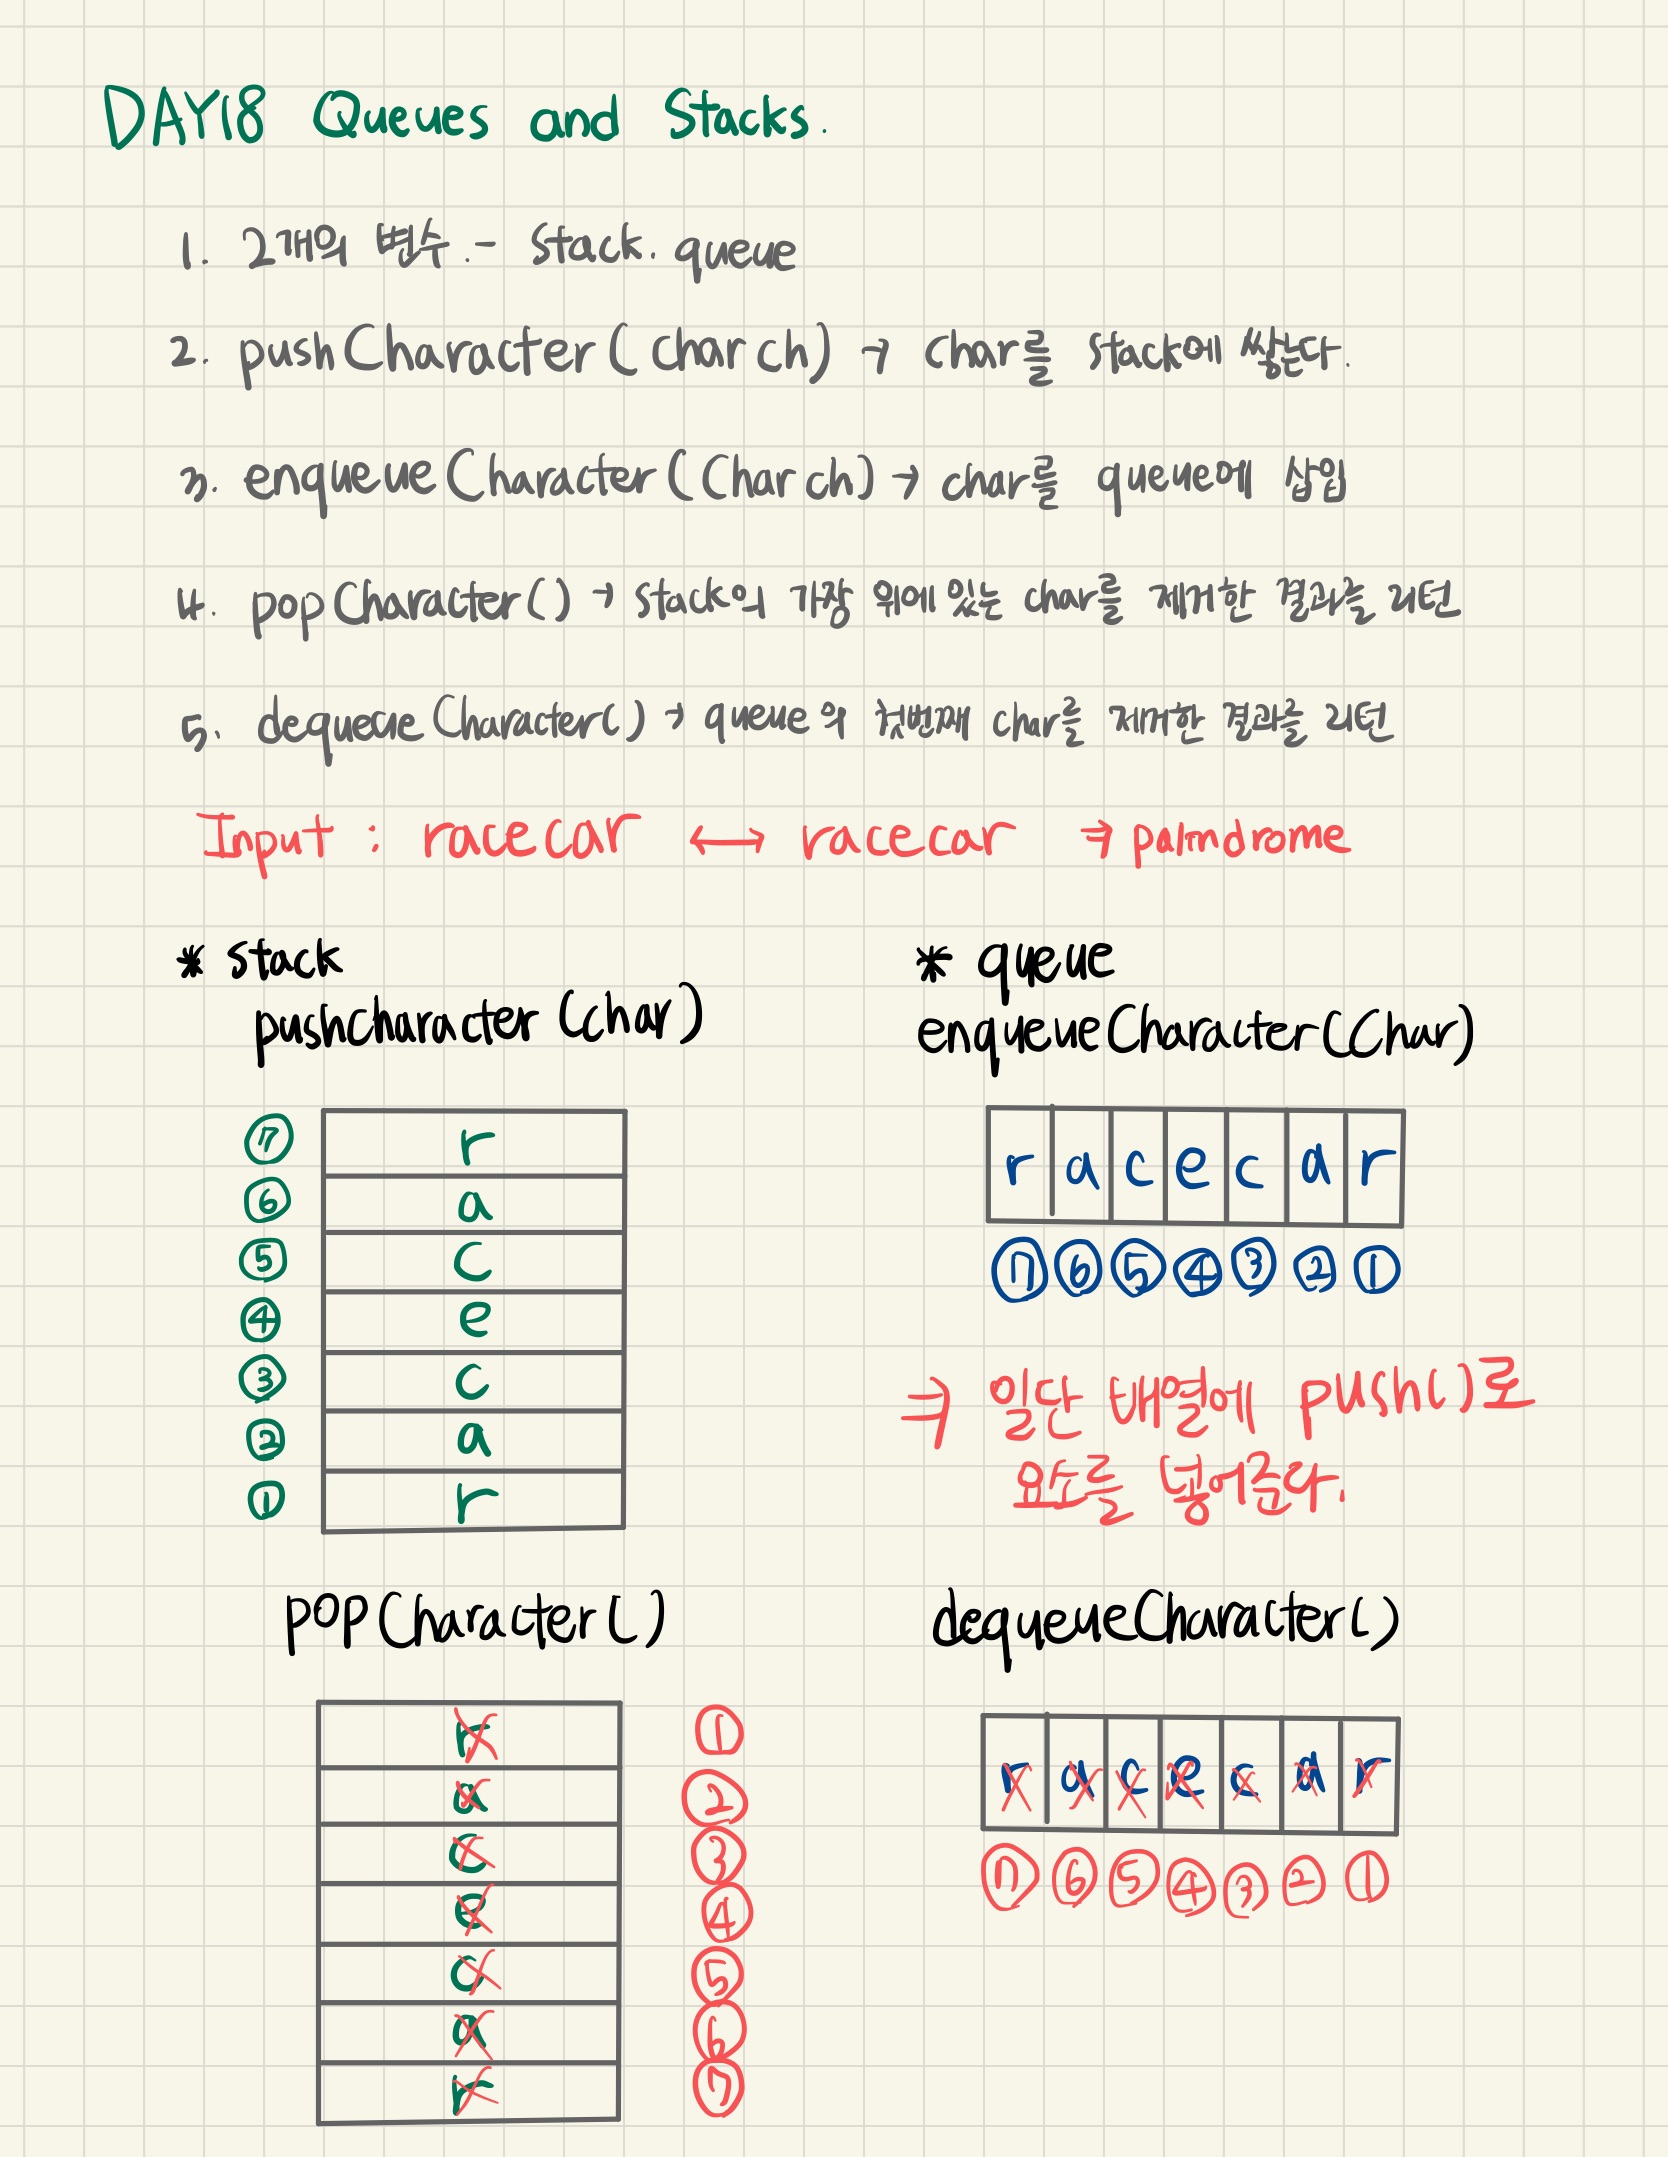 DAY18 Queues and Stacks.
1. 2개의 변수.- Stack. queue
2. pushCharacter(Char ch) → char를 stack에 쌓는다.
3. enqueueCharacter(Char ch) → char를 queue에 삽입
4. popCharacter() → stack의 가장 위에 있는 char를 제거한 결과를 리턴
5. dequeueCharacter() → queue의 첫번째 char를 제거한 결과를 리턴
Input : racecar ↔ racecar ⇒ palindrome
* stack
pushcharacter (char)
⑦ r
⑥ a
⑤ c
④ e
③ c
② a
① r
* queue
enqueueCharacter(Char)
r a c e c a r
⑦ ⑥ ⑤ ④ ③ ② ①
⇒ 일단 배열에 push()로
요소를 넣어준다.
POPCharacter()
r ①
a ②
c ③
e ④
c ⑤
a ⑥
r ⑦
dequeueCharacter()
r a c e c a r
⑦ ⑥ ⑤ ④ ③ ② ①